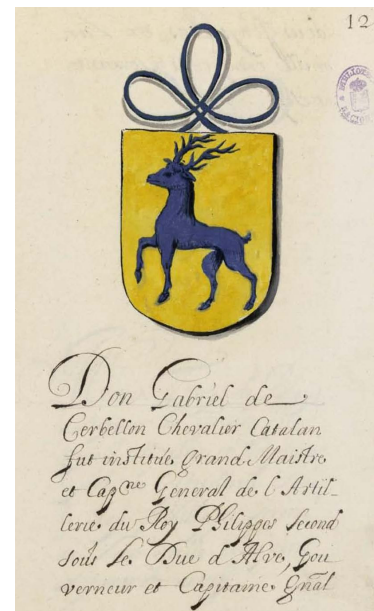 12
BIBLIOTECA
NACIONAL
Don Gabriel de
Cerbellon Chevalier Catalan
fut institué grand Maistre
et Capne General de l Artil-
lerie du Roy Philippes second
sous le Duc d Alve, Gou
verneur et Capitaine gnãl